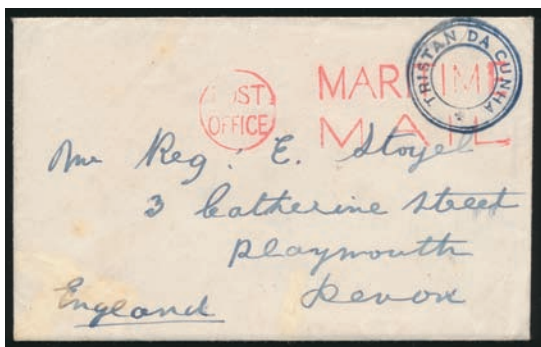 POST
OFFICE
MARITIME
MAIL
TRISTAN DA CUNHA
Mr Reg: E. Stoyel
3 Catherine Street
Playmouth
Devon
England